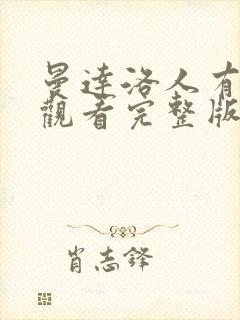 曼達洛人有
觀看完整版
肖志鋒